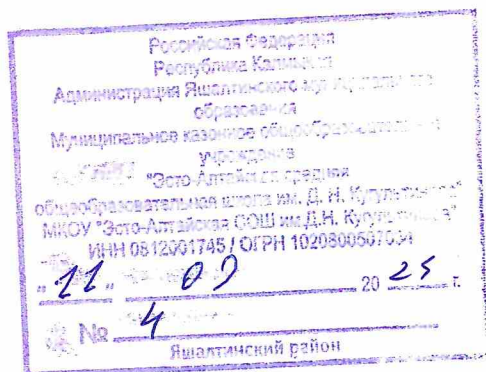 Российская Федерация
Республика Калмыкия
Администрация Яшалтинского
образования
Муниципальное казенное общеобразовательное
учреждение
"Эсто-Алтайская средняя
общеобразовательная школа им. Д. Н. Кугультинова"
МКОУ "Эсто-Алтайская СОШ им.Д.Н. Кугультинова"
ИНН 0812001745 / ОГРН
"11" 09 20 25 г.
№ 4
Яшалтинский район